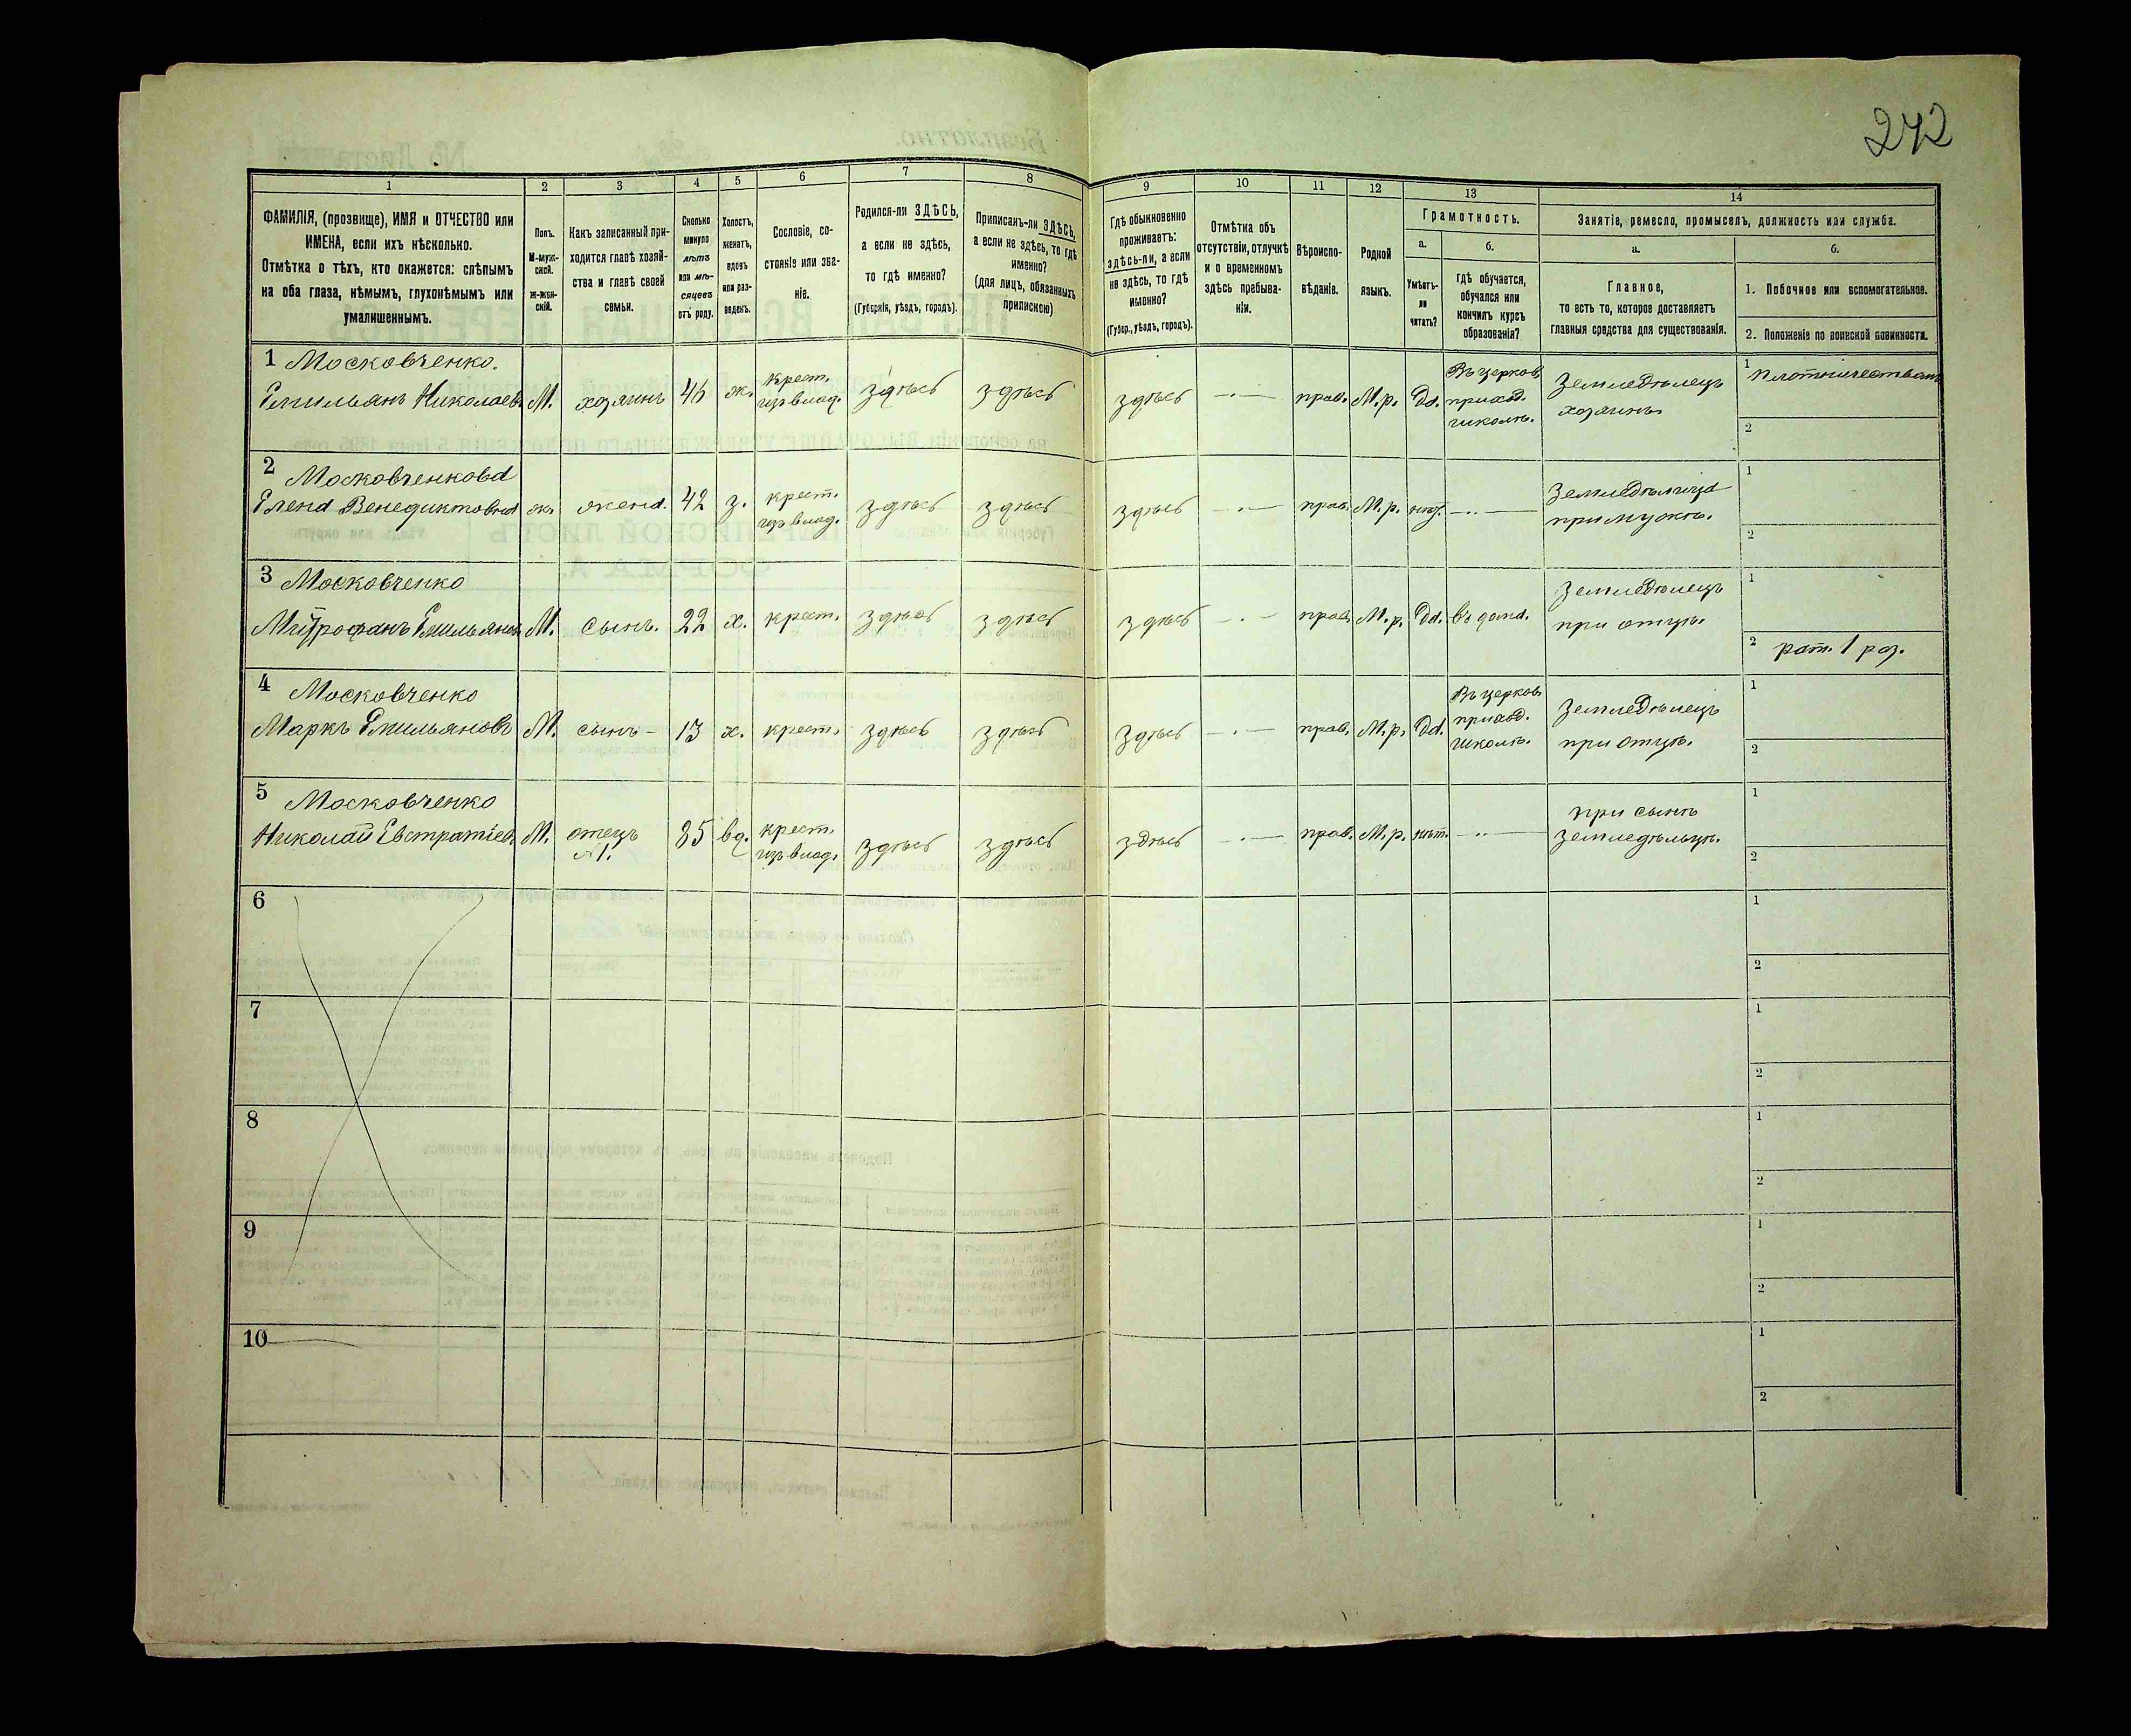 242
1
2
3
4
5
6
7
8
9
10
11
12
13
14
ФАМИЛІЯ, (прозвище), ИМЯ и ОТЧЕСТВО или
ИМЕНА, если ихъ нѣсколько.
Отмѣтка о тѣхъ, кто окажется: слѣпымъ
на оба глаза, нѣмымъ, глухонѣмымъ или
умалишеннымъ.
Полъ.
М-муж-
ской.
Ж-жен-
скій.
Какъ записанный при-
ходится главѣ хозяй-
ства и главѣ своей
семьи.
Сколько
минуло
лѣтъ
или мѣ-
сяцевъ
отъ роду.
Холостъ,
женатъ,
вдовъ
или раз-
веденъ.
Сословіе, со-
стояніе или зва-
ніе.
Родился-ли ЗДѢСЬ,
а если не здѣсь,
то гдѣ именно?
(Губернія, уѣздъ, городъ).
Приписанъ-ли ЗДѢСЬ,
а если не здѣсь, то гдѣ
именно?
(для лицъ, обязанныхъ
припискою)
Гдѣ обыкновенно
проживаетъ:
здѣсь-ли, а если
не здѣсь, то гдѣ
именно?
(Губер., уѣздъ, городъ).
Отмѣтка объ
отсутствіи, отлучкѣ
и о временномъ
здѣсь пребыва-
ніи.
Вѣроиспо-
вѣданіе.
Родной
языкъ.
Грамотность.
а.
Умѣетъ-
ли
читать?
б.
Гдѣ обучается,
обучался или
кончилъ курсъ
образованія?
Занятіе, ремесло, промыселъ, должность или служба.
а.
Главное,
то есть то, которое доставляетъ
главныя средства для существованія.
б.
1. Побочное или вспомогательное.
2. Положеніе по воинской повинности.
1 Московченко.
Емильянъ Николаевъ М. хозяинъ 46 ж. крест. изъ влад. здѣсь здѣсь здѣсь —·— прав. М.р. Да. Въ церков. приход. школѣ. Земледѣлецъ хозяинъ. 1 плотничествомъ
2
2 Московченкова
Елена Венедиктовна ж. жена. 42 з. крест. изъ влад. здѣсь здѣсь здѣсь —·— прав. М.р. нѣт. —··— Земледѣлица при мужѣ. 1
2
3 Московченко
Митрофанъ Емильяновъ М. сынъ. 22 х. крест. здѣсь здѣсь здѣсь —·— прав. М.р. Да. въ дома. Земледѣлецъ при отцѣ. 1
2 рат. 1 раз.
4 Московченко
Маркъ Емильяновъ М. сынъ — 13 х. крест. здѣсь здѣсь здѣсь —·— прав. М.р. Да. Въ церков. приход. школѣ. Земледѣлецъ при отцѣ. 1
2
5 Московченко
Николай Евстратіевъ М. отецъ №1. 85 вд. крест. изъ влад. здѣсь здѣсь здѣсь —·— прав. М.р. нѣт. —··— при сынѣ земледѣльцѣ. 1
2
6 1
2
7 1
2
8 1
2
9 1
2
10 1
2